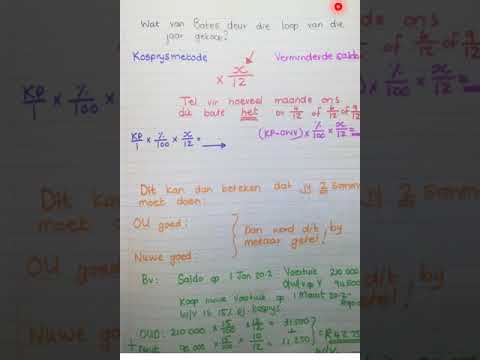 Wat van Bates deur die loop van die
jaar gekoop?
Kosprysmetode
Verminderde saldo
× x/12
Tel vir hoeveel maande ons
die bate het of 4/12 of 6/12 of 9/12
KP/1 × %/100 × x/12 =
(KP-OWV) × %/100 × x/12 =
Dit kan dan beteken dat jy 2 somme
moet doen:
OU goed:
Nuwe goed:
Dan word dit by
mekaar getel!
Bv: Saldo op 1 Jan 20.2 Voertuie 210 000
Koop nuwe voertuie op 1 Maart 20.2
WV is 15% ej. kosprys.
OUD: 210 000 × 15/100 × 12/12 = 31 500
90 000 × 15/100 × 10/12 = 11 250